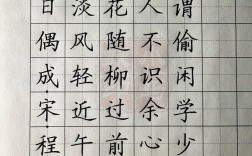 日偶成·宋程
淡风轻近午
花随柳过前
人不识余心
谓偷闲学少